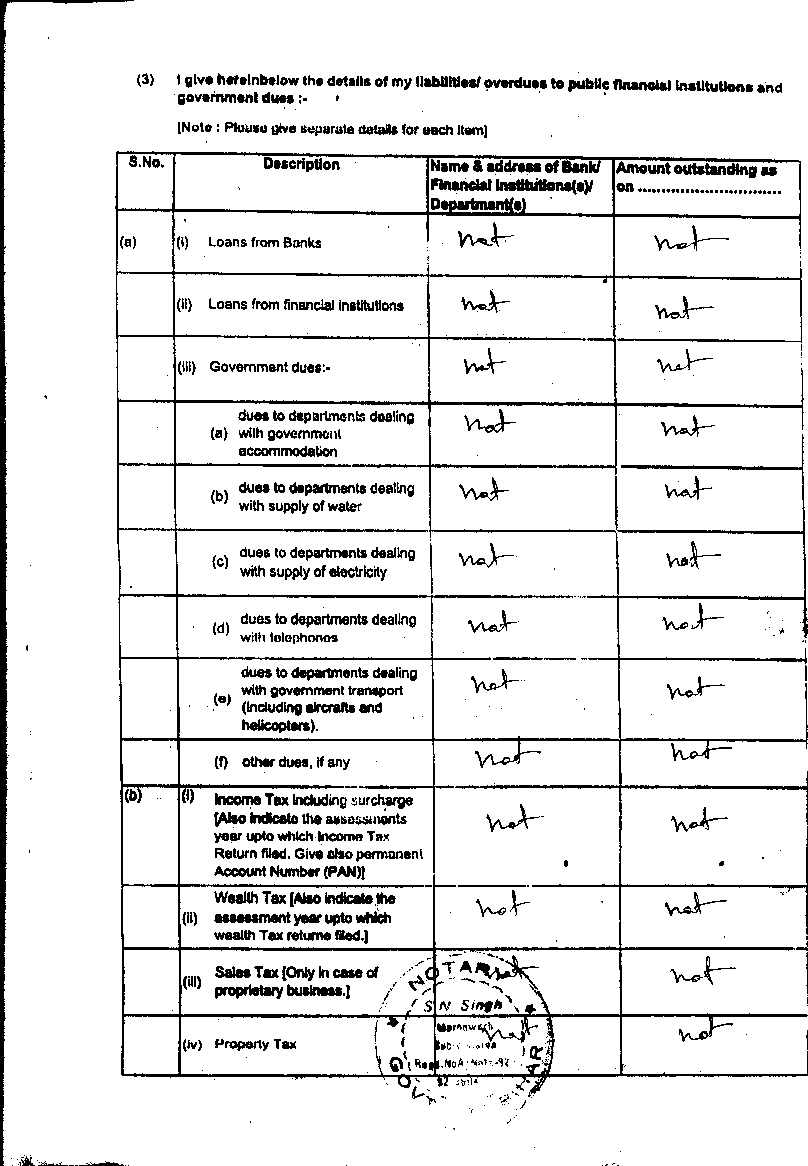 (3) I give hereinbelow the details of my liabilities/ overdues to public financial institutions and
government dues :-
[Note : Please give separate details for each item]
S.No. Description Name & address of Bank/ Amount outstanding as
Financial Institutions(s)/ on ..............................
Department(s)
(a) (i) Loans from Banks not not
(ii) Loans from financial institutions not not
(iii) Government dues:- not not
dues to departments dealing
(a) with government not not
accommodation
(b) dues to departments dealing not not
with supply of water
(c) dues to departments dealing not not
with supply of electricity
(d) dues to departments dealing not not
with telephones
dues to departments dealing
(e) with government transport not not
(including aircrafts and
helicopters).
(f) other dues, if any not not
(b) (i) Income Tax including surcharge
[Also indicate the assessments not not
year upto which Income Tax
Return filed. Give also permanent
Account Number (PAN)]
Wealth Tax [Also indicate the
(ii) assessment year upto which not not
wealth Tax returne filed.]
(iii) Sales Tax [Only in case of not not
proprietary business.]
(iv) Property Tax not not
NOTAR
S N Singh
BIHAR